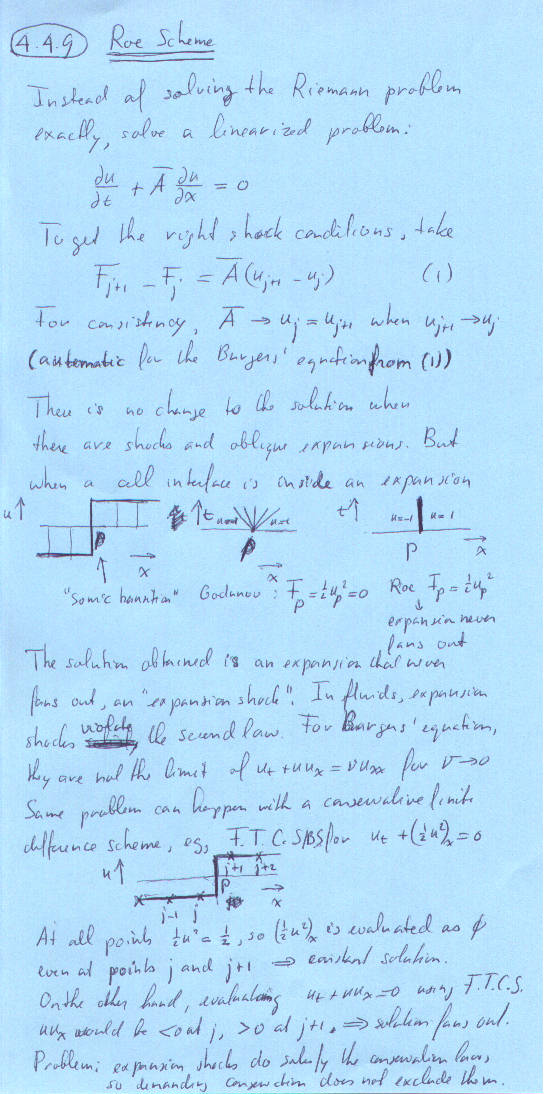 4.4.9 Roe Scheme
Instead of solving the Riemann problem
exactly, solve a linearized problem:
∂u/∂t + A̅ ∂u/∂x = 0
To get the right shock conditions, take
F̅_{j+1} - F̅_j = A̅(u_{j+1} - u_j) (1)
For consistency, A̅ → u_j = u_{j+1} when u_{j+1} → u_j
(automatic for the Burgers' equation from (1))
There is no change to the solution when
there are shocks and oblique expansions. But
when a cell interface is inside an expansion
u↑ ↑t u=-1 u=1 t↑ u=-1 u=1
P P P x
x x
"Sonic transition" Godunov: F_P = ½u_P² = 0 Roe F_P = ½u_P²
↓
expansion never
fans out
The solution obtained is an expansion that never
fans out, an "expansion shock". In fluids, expansion
shocks violate the second law. For Burgers' equation,
they are not the limit of u_t + uu_x = νu_xx for ν→0
Same problem can happen with a conservative finite
difference scheme, eg, F.T.C.S/BS for u_t + (½u²)_x = 0
u↑ j+1 j+2
P
j-1 j x
At all points ½u² = ½, so (½u²)_x is evaluated as 0
even at points j and j+1 ⇒ constant solution.
On the other hand, evaluating u_t + uu_x = 0 using F.T.C.S.
uu_x would be <0 at j, >0 at j+1, ⇒ solution fans out.
Problem: expansion shocks do satisfy the conservation laws,
so demanding conservation does not exclude them.